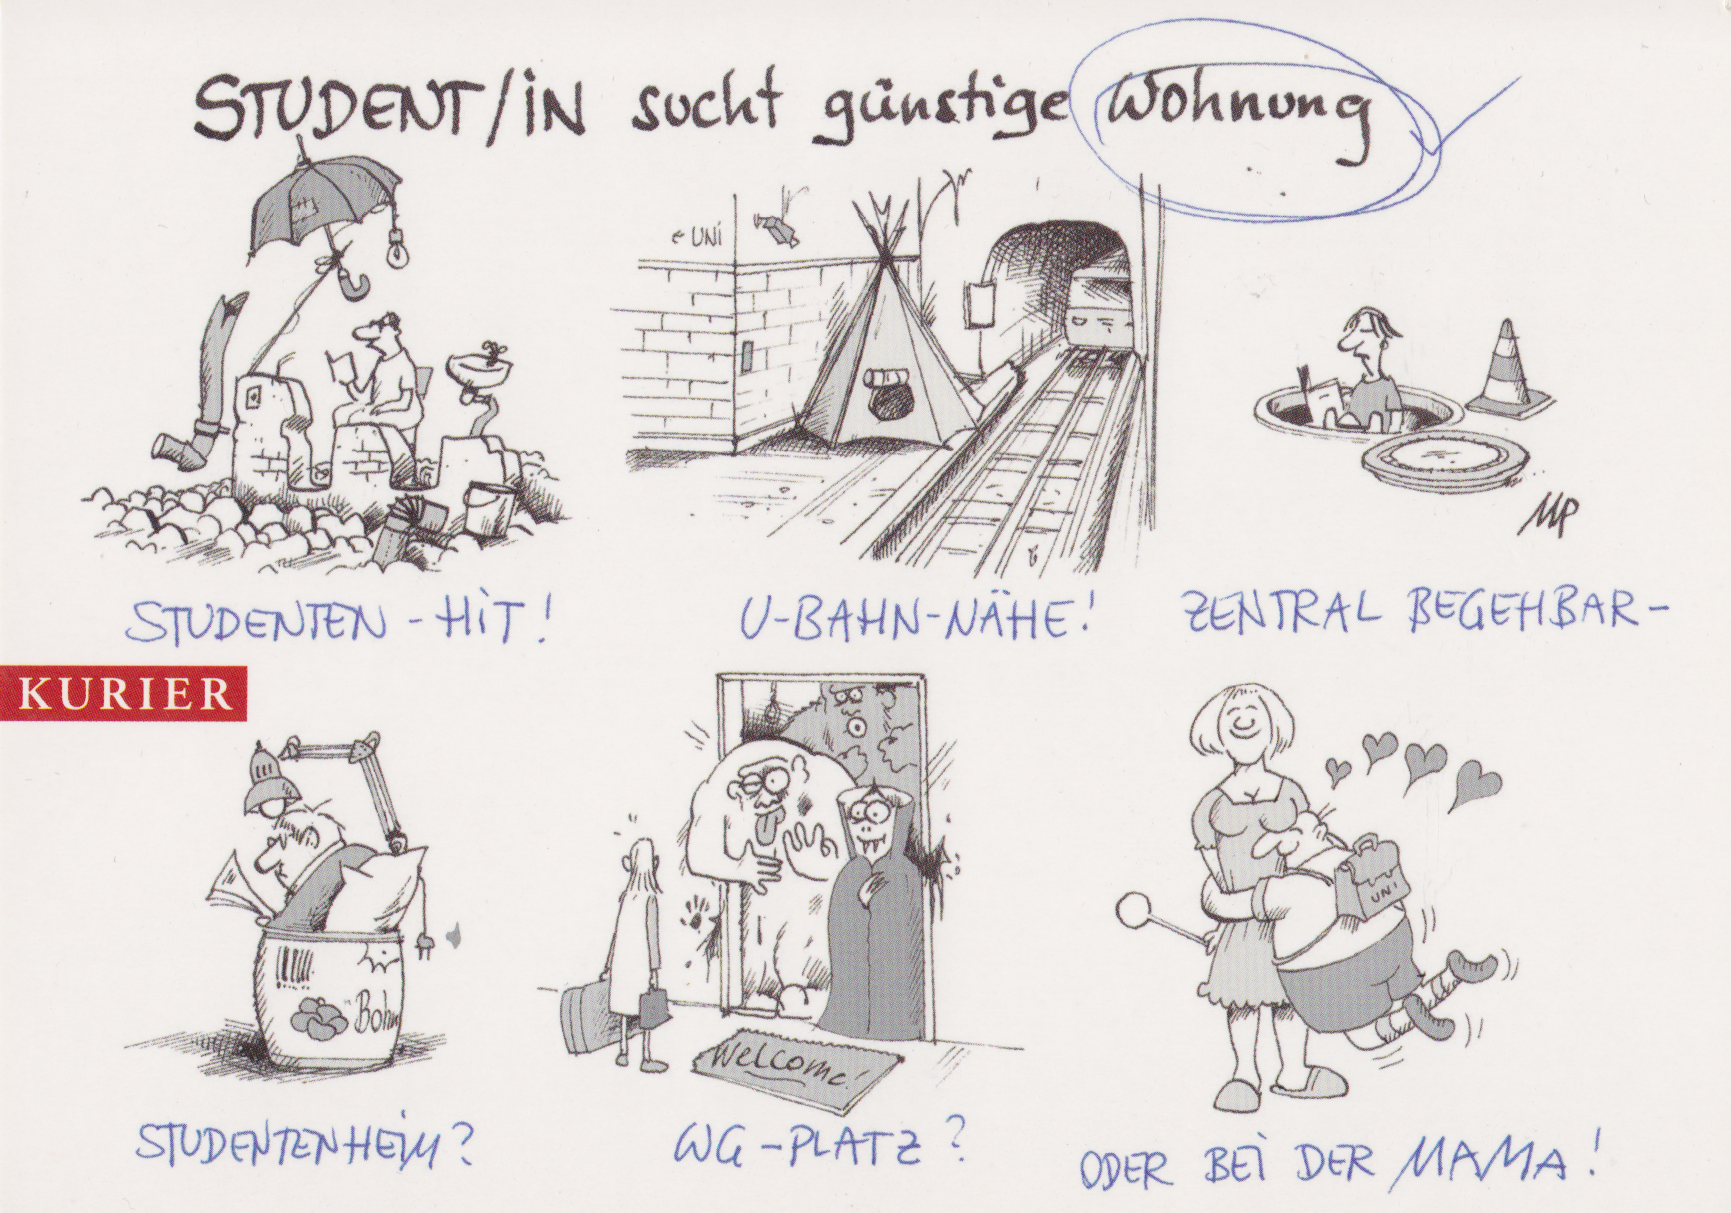 STUDENT/iN sucht günstige Wohnung
← UNi
MP
STUDENTEN-HiT!
U-BAHN-NÄHE!
ZENTRAL BEGEHBAR-
KURIER
Bohn
Welcome!
UNi
STUDENTENHEiM?
WG-PLATZ?
ODER BEi DER MAMA!